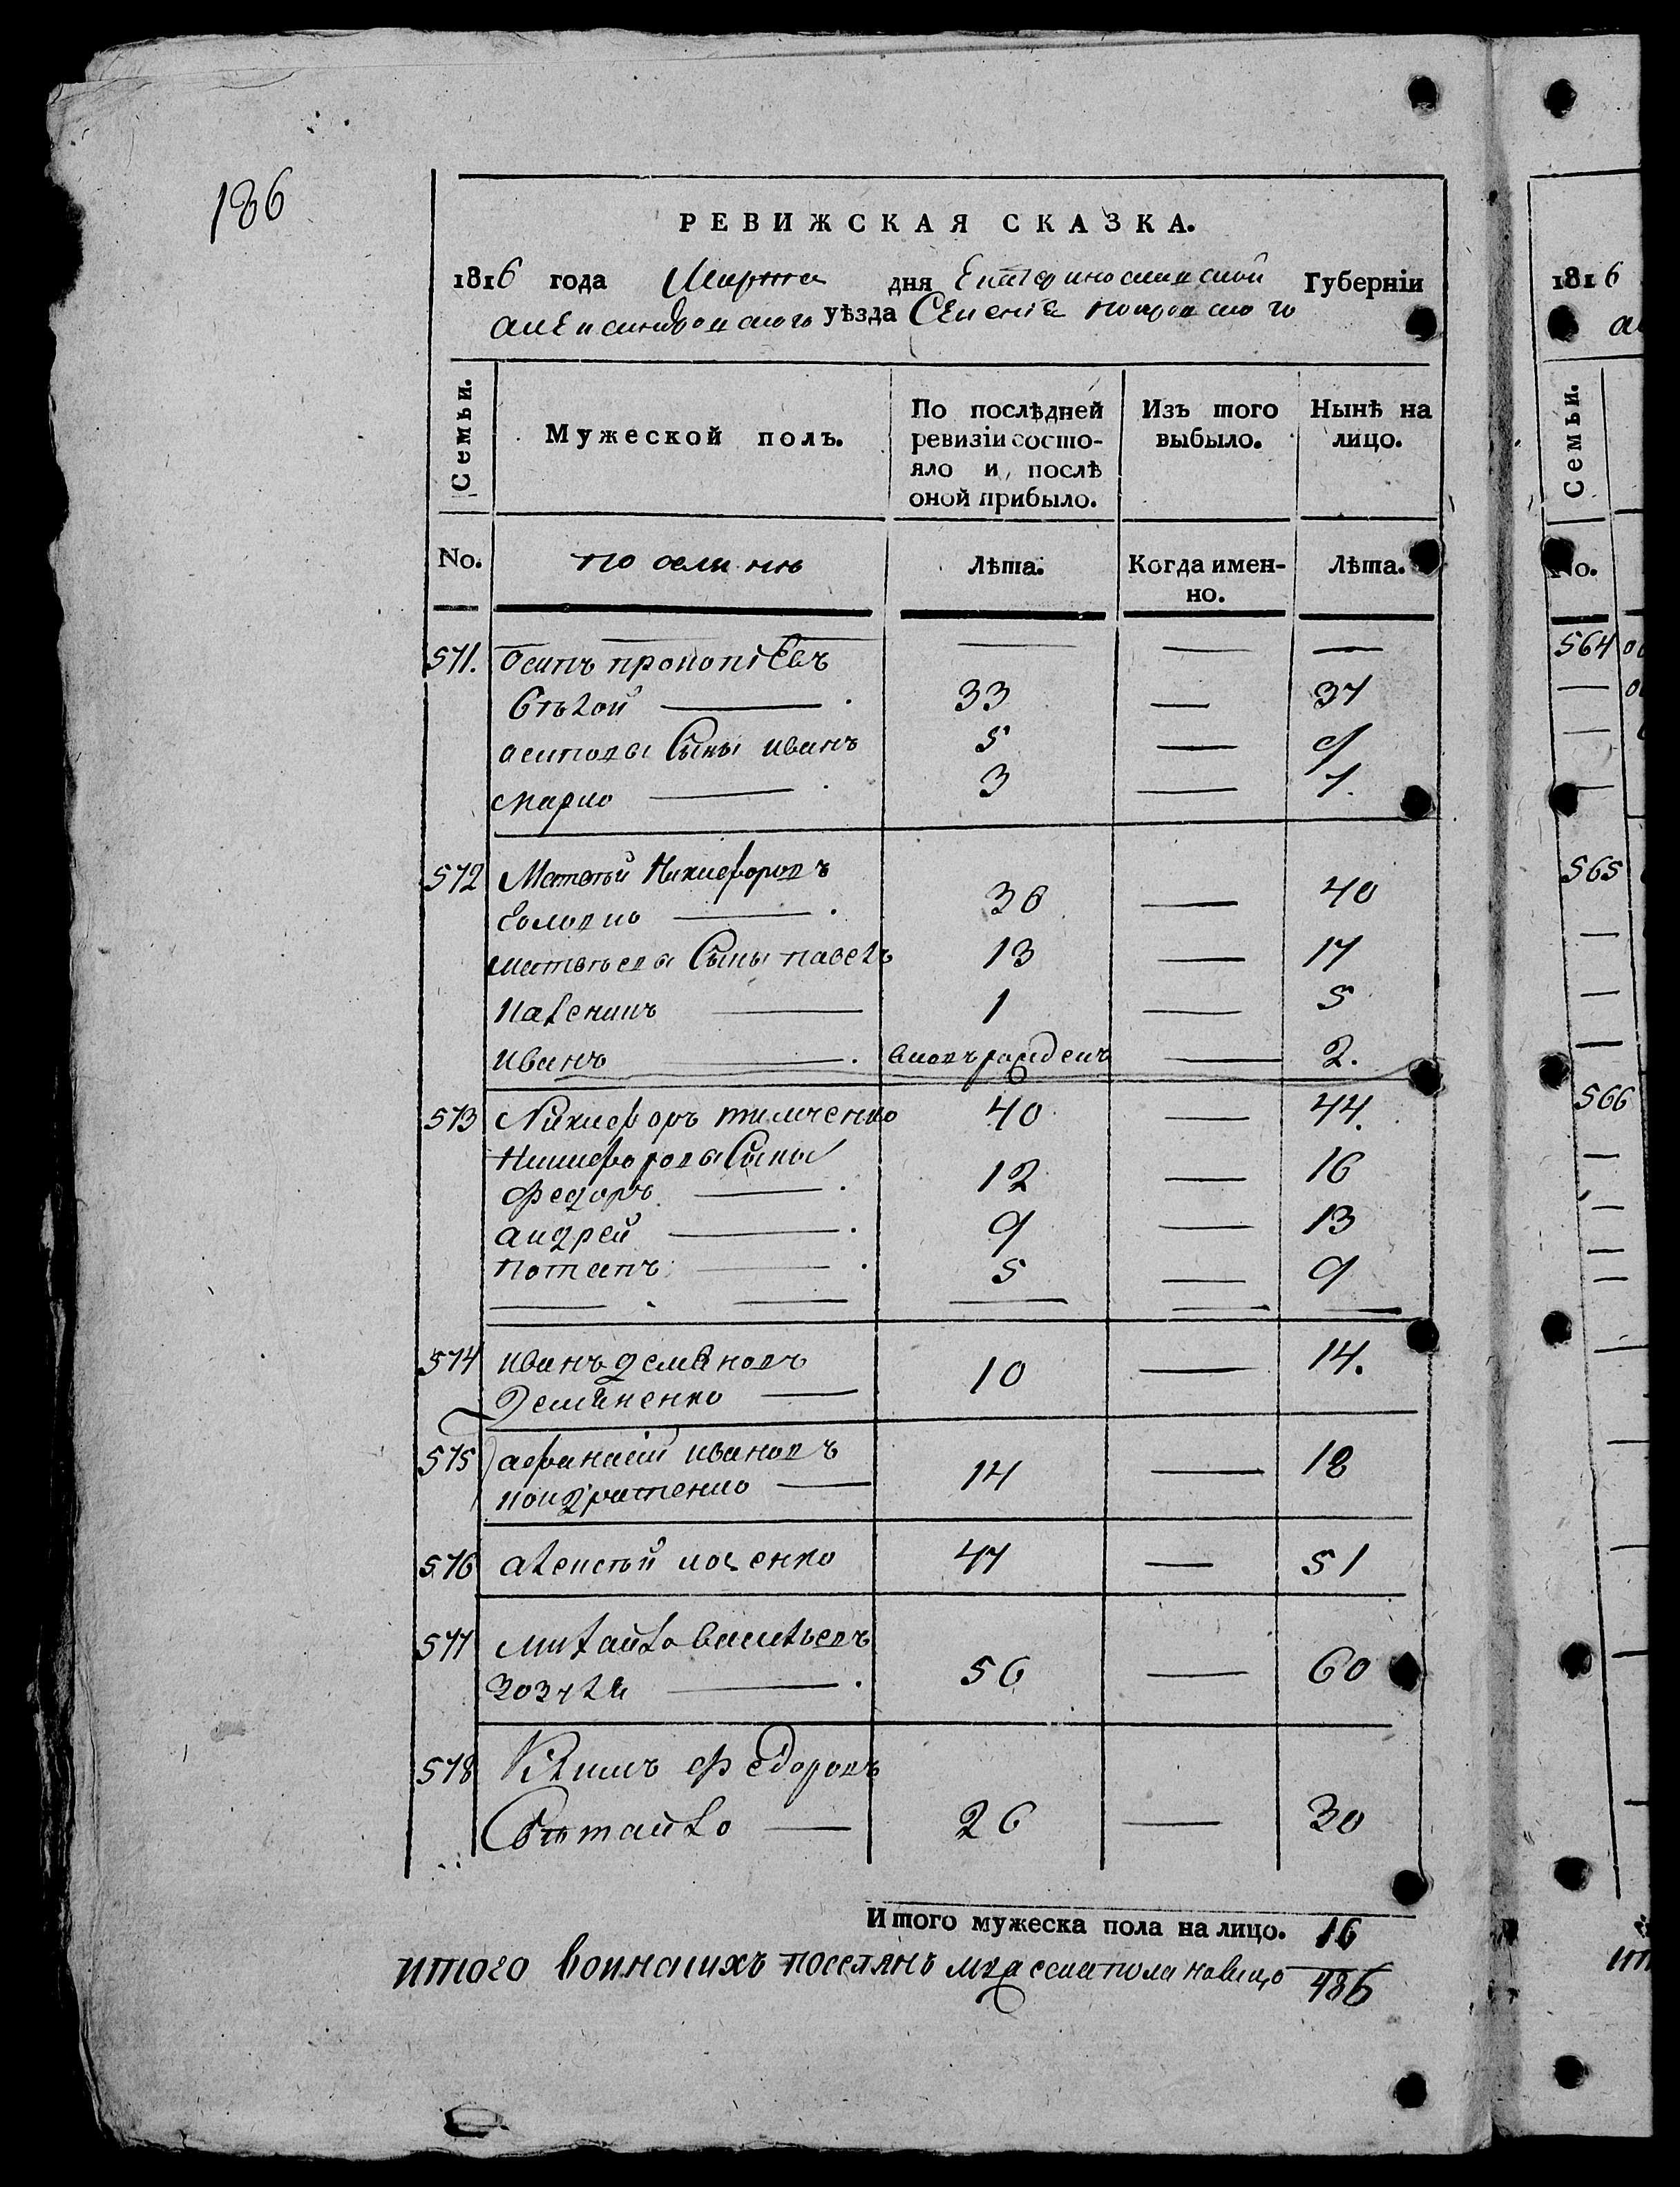 186
РЕВИЖСКАЯ СКАЗКА.
1816 года Марта дня Екатеринославской Губерніи
александровского уѣзда Селеніе покровского
Семьи. Мужеской полъ. По послѣдней ревизіи состояло и послѣ оной прибыло. Изъ того выбыло. Нынѣ на лицо.
No. Лѣта. Когда именно. Лѣта.
571. Осипъ прокопіевъ — — —
бѣлой — 33 — 37
осиповы Сыны иванъ 5 — 9
марко — 3 — 7.
572 Матвѣй Никифоровъ
36 — 40
матвѣевы Сыны павелъ 13 — 17
1 — 5
иванъ — вновь рожденъ — 2.
573 Никифоръ тимченко 40 — 44.
Никифоровы Сыны
федоръ — 12 — 16
андрей — 9 — 13
потапъ — 5 — 9
574 иванъ демяновъ
Демяненко — 10 — 14.
575 афанасій ивановъ
кондратенко — 14 — 18
576 алексѣй 47 — 51
577 михайло васильевъ
56 — 60
578 Климъ федоровъ
26 — 30
Итого мужеска пола на лицо. 16
итого воинскихъ поселянъ мужеска пола налицо 486
1816
Семьи.
No.
564
565
566